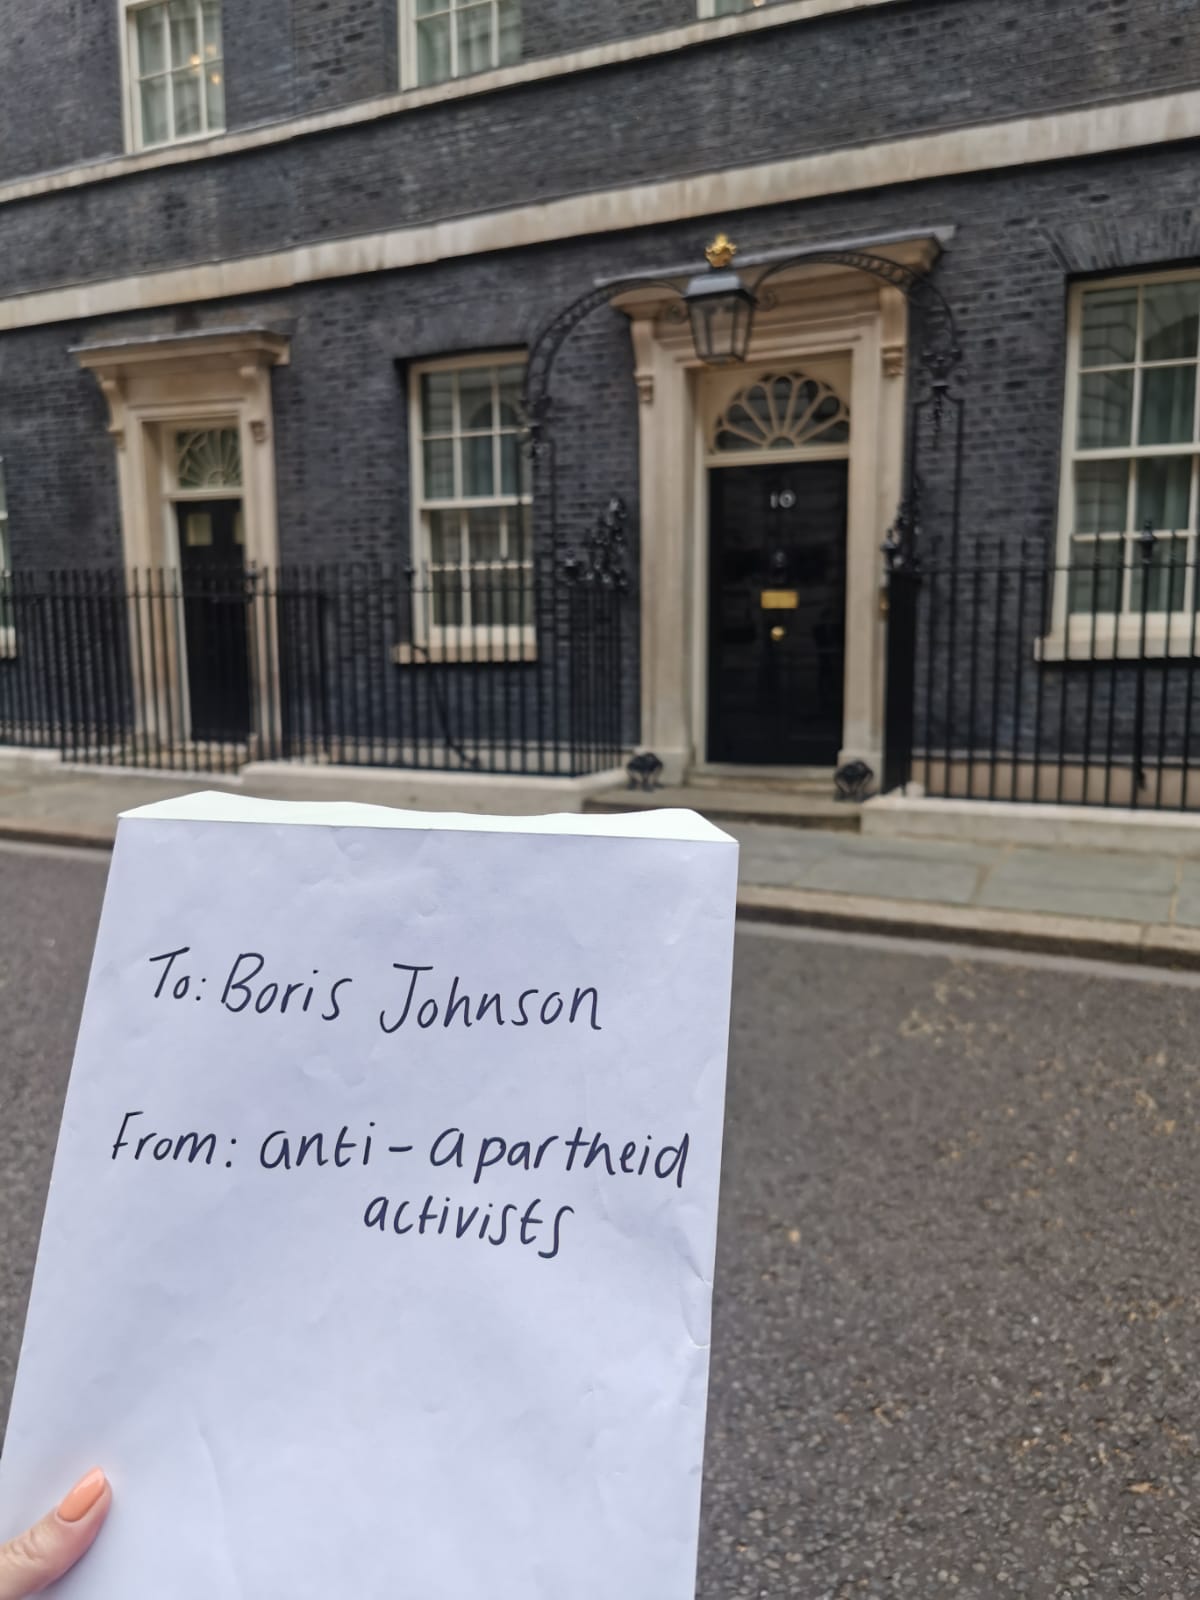 10
To: Boris Johnson
From: anti-apartheid
activists